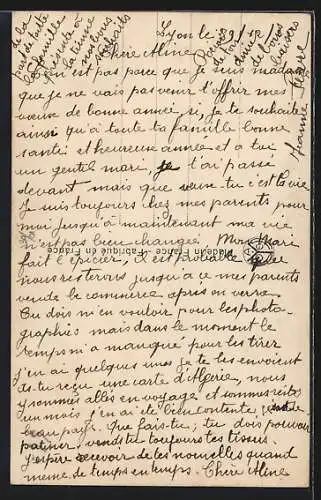 Lyon le 29/12
Chère Aline
Ce n'est pas parce que je suis madame
que je ne vais pas venir t'offrir mes
vœux de bonne année si, je te souhaite
ainsi qu'à toute ta famille bonne
santé et heureuse année et à toi
un gentil mari, je t'ai passé
devant mais que veux-tu c'est la vie
Je suis toujours chez mes parents, pour
moi jusqu'à maintenant ma vie
n'est pas bien changée. Mon Mari
fait l'épicier, il est probable que
nous resterons jusqu'à ce mes parents
vende le commerce après on verra
Tu dois m'en vouloir pour les photo-
graphies mais dans le moment le
temps m'a manqué pour les tirer
j'en ai quelques unes je te les envoient
as-tu reçu une carte d'Algérie, nous
y sommes allés en voyage et sommes restés
un mois j'en ai été bien contente,
beau pays. Que fais-tu; tu dois pouvoir
patiner, vends tu toujours tes tissus.
J'espère recevoir de tes nouvelles quand
même de temps en temps. Chère Aline
Reçois
de ton
amie
de bons
baisers
Jeanne
de la
part de toute
la famille
présente à
la tienne
nos bons
souhaits
Fabriqué en France